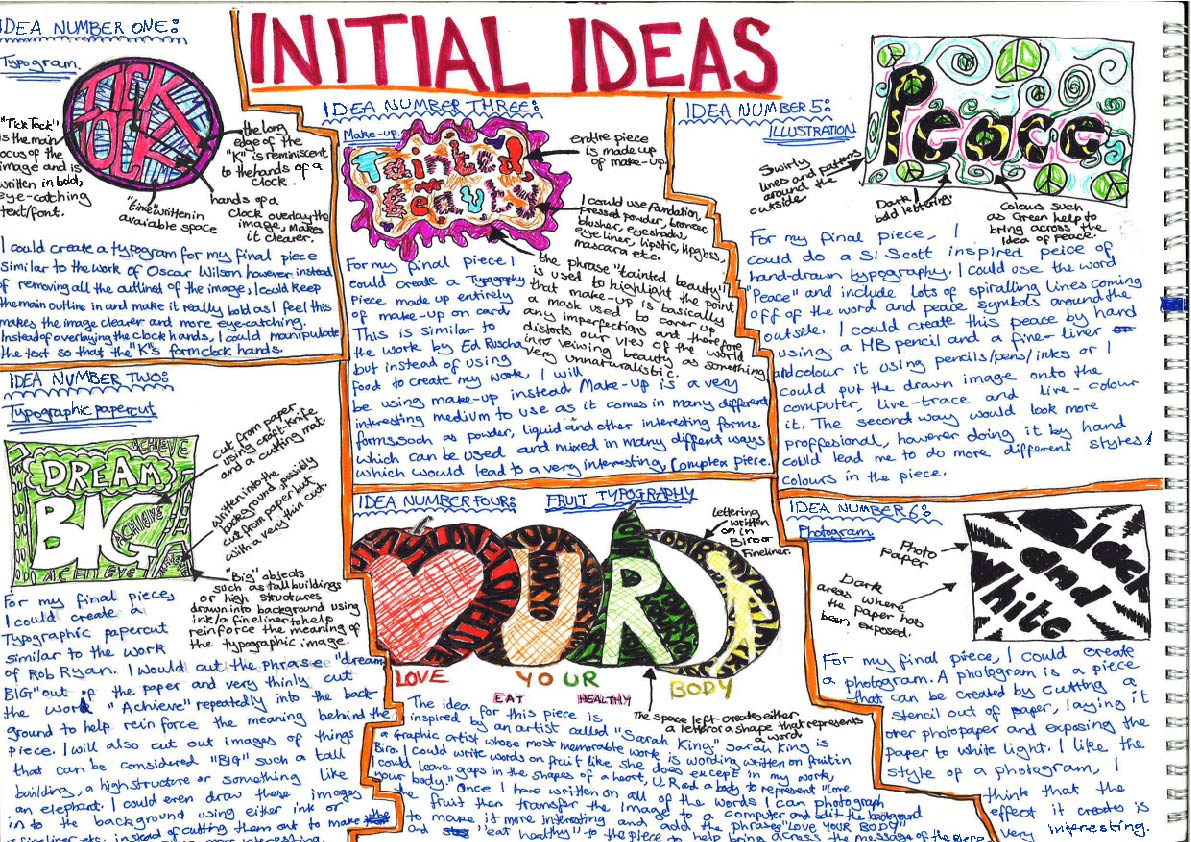 INITIAL IDEAS
IDEA NUMBER ONE:
Typogram.
TICK
TOCK
"Tick Tock"
is the main
focus of the
image and is
written in bold,
eye-catching
text/font.
the long
edge of the
"K" is reminiscent
to the hands of a
clock.
"time" written in
available space
hands of a
clock overlay the
image, makes
it clearer.
I could create a typogram for my final piece
similar to the work of Oscar Wilson however instead
of removing all the outlines of the image, I could keep
the main outline in and make it really bold as I feel this
makes the image clearer and more eye-catching.
Instead of overlaying the clock hands, I could manipulate
the text so that the "K"s form clock hands.
IDEA NUMBER TWO:
Typographic papercut
DREAM
BIG
ACHIEVE
ACHIEVE
ACHIEVE
cut from paper
using craft knife
and a cutting mat.
written into the
background, possibly
cut from paper but
with a very thin cut.
"Big" objects
such as tall buildings
or high structures
drawn into background using
ink/a fineliner to help
reinforce the meaning of
the typographic image.
For my final piece,
I could create a
Typographic papercut
similar to the work
of Rob Ryan. I would cut the phrase "dream
BIG" out of the paper and very thinly cut
the work "Achieve" repeatedly into the back-
ground to help reinforce the meaning behind the
piece. I will also cut out images of things
that can be considered "BIG" such a tall
building, a high structure or something like
an elephant. I could even draw these images
into the background using either ink or
a fineliner etc. instead of cutting them out to make
IDEA NUMBER THREE:
Make-up.
Tainted
Beauty
entire piece
is made up
of make-up.
I could use fondation,
pressed powder, bronzer
blusher, eyeshadow,
eye liner, lipstic, lipgloss,
mascara etc.
the phrase "tainted beauty"
is used to highlight the point
that make-up is basically
a mask used to cover up
any imperfections and therefore
distorts our vies of the world
into veiwing beauty as something
very unnaturalistic.
For my final piece I
could create a Typography
piece made up entirely
of make-up on card.
This is similar to
the work by Ed Ruscha
but instead of using
food to create my work, I will
be using make-up instead Make-up is a very
interesting medium to use as it comes in many different
forms such as powder, liquid and other interesting forms.
which can be used and mixed in many diffent ways
which would lead to a very interesting, complex piece.
IDEA NUMBER FOUR: FRUIT TYPOGRAPHY
UR
lettering
written
on in
Biro or
Fineliner.
LOVE YOUR BODY
EAT HEALTHY
The space left creates either
a letter or a shape that represents
a word
The idea for this piece is
inspired by an artist called "Sarah King." Sarah King is
a Graphic artist whose most memorable work is wording written on fruit in
Biro. I could write words on fruit like she does except in my work,
I could leave gaps in the shapes of a heart, U R and a body to represent "love
your body". Once I have written on all of the words I can photograph
the fruit then transfer the image to a computer and edit the background
to make it more interesting and add the phrases "LOVE YOUR BODY"
and "eat healthy" to the piece to help bring across the message of the piece.
IDEA NUMBER 5:
ILLUSTRATION
Peace
Swirly
lines and patterns
around the
outside
Dark
bold lettering.
Colours such
as Green help to
bring across the
Idea of Peace.
For my final piece, I
could do a Si Scott inspired peice of
hand-drawn typography. I could use the word
"Peace" and include lots of spiralling lines coming
off of the word and peace symbols around the
outside. I could create this peace by hand
using a HB pencil and a fine-liner
and colour it using pencils/pens/inks or I
could put the drawn image onto the
computer, live-trace and live-colour
it. The second way would look more
proffesional, however doing it by hand
could lead me to do more different styles/
colours in the piece.
IDEA NUMBER 6:
Photogram.
Black
and
White
Photo
Paper
Dark
areas where
the paper has
been exposed.
For my final piece, I could create
a photogram. A photogram is a piece
that can be created by cutting a
stencil out of paper, laying it
over photopaper and exposing the
paper to white light. I like the
style of a photogram, I
think that the
effect it creates is
very interesting.